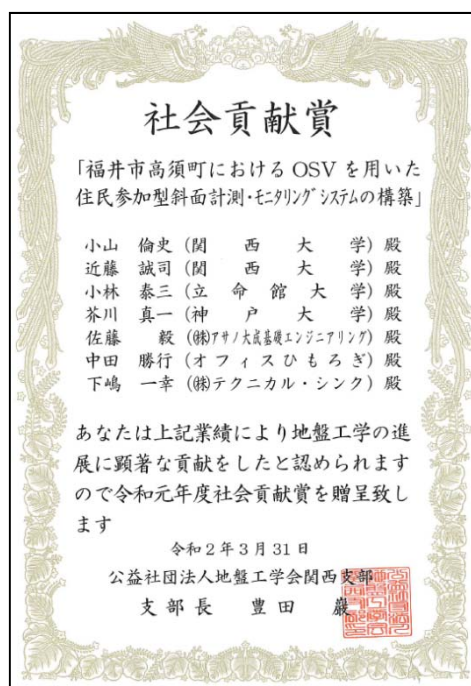 社会貢献賞
「福井市高須町における OSV を用いた
住民参加型斜面計測・モニタリングシステムの構築」
小山 倫史 (関西大学) 殿
近藤 誠司 (関西大学) 殿
小林 泰三 (立命館大学) 殿
芥川 真一 (神戸大学) 殿
佐藤 毅 (㈱アサノ大成基礎エンジニアリング) 殿
中田 勝行 (オフィスひもろぎ) 殿
下嶋 一幸 (㈱テクニカル・シンク) 殿
あなたは上記業績により地盤工学の進
展に顕著な貢献をしたと認められます
ので令和元年度社会貢献賞を贈呈致し
ます
令和2年3月31日
公益社団法人地盤工学会関西支部
支部長 豊田 巖